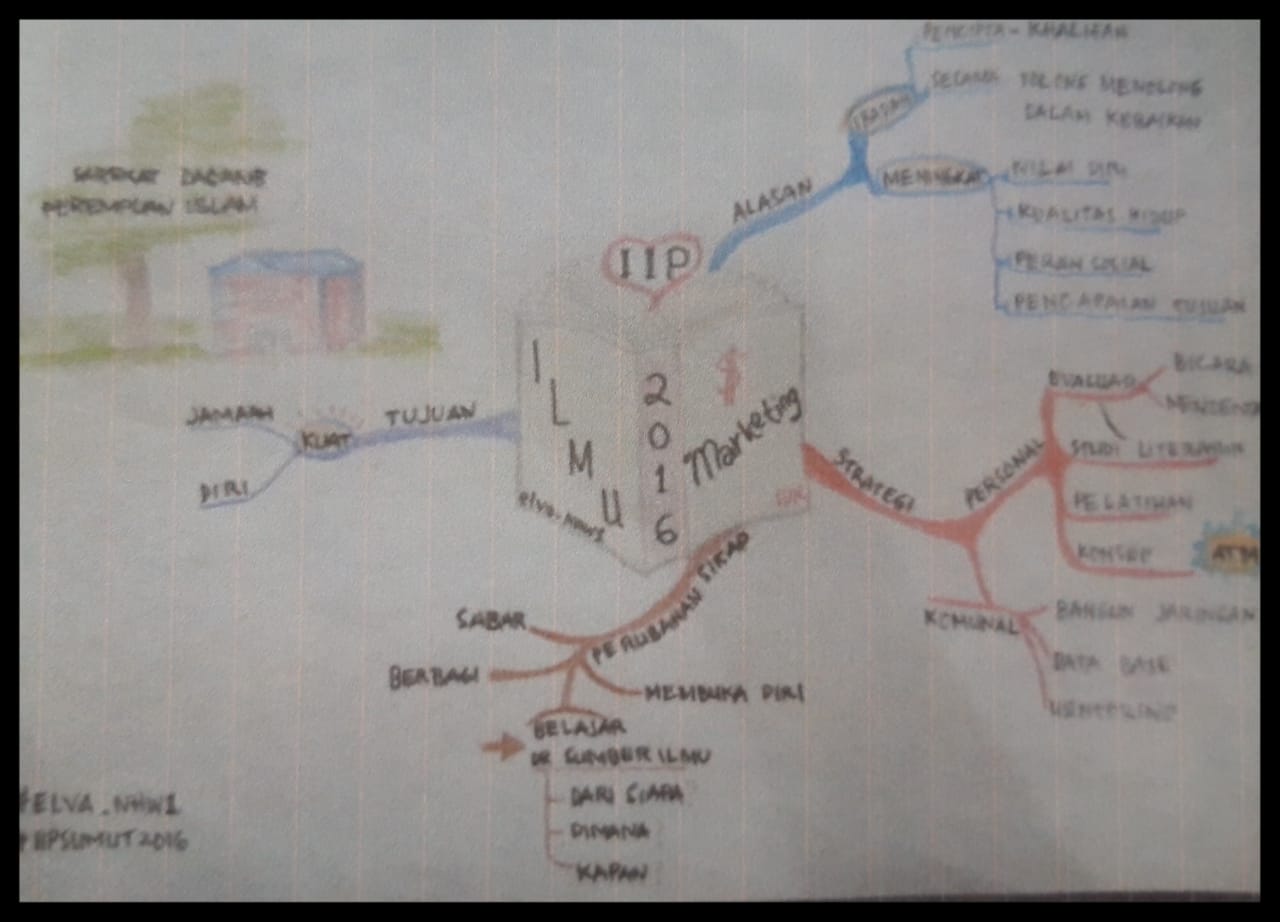 PENCIPTA - KHALIFAH
IBADAH
SECARA TOLONG MENOLONG
DALAM KEBAIKAN
ALASAN
MENINGKAT
NILAI DIRI
KUALITAS HIDUP
PERAN SOSIAL
PENCAPAIAN TUJUAN
DAGANG
PEREMPUAN ISLAM
IIP
ILMU
2016
$
Marketing
elva.nhw1
TUJUAN
KUAT
JAMAAH
DIRI
STRATEGI
PERSONAL
EVALUASI
BICARA
STUDI LITERATUR
PELATIHAN
KONSEP
KOMUNAL
BANGUN JARINGAN
DATA BASE
PERUBAHAN SIKAP
SABAR
BERBAGI
MEMBUKA DIRI
BELAJAR
DR SUMBER ILMU
DARI SIAPA
DIMANA
KAPAN
#ELVA.NHW1
#IIPSUMUT2016